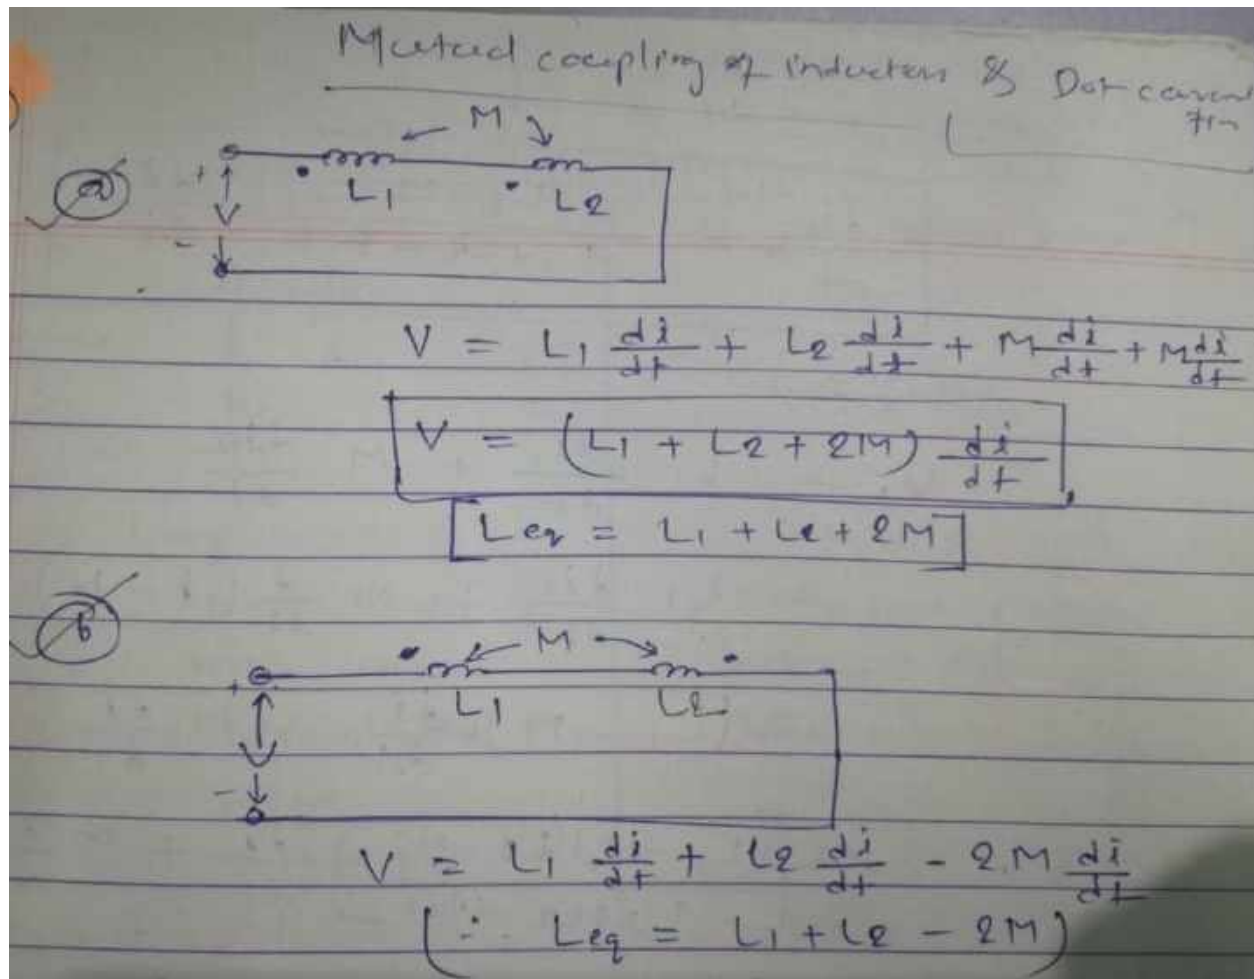 Mutual coupling of inductors & Dot conven
tion
M
(a)
+
L1
L2
V
-
V = L1 di/dt + L2 di/dt + M di/dt + M di/dt
V = (L1 + L2 + 2M) di/dt
[Leq = L1 + L2 + 2M]
(b)
M
+
L1
L2
V
-
V = L1 di/dt + L2 di/dt - 2M di/dt
(∴ Leq = L1 + L2 - 2M)